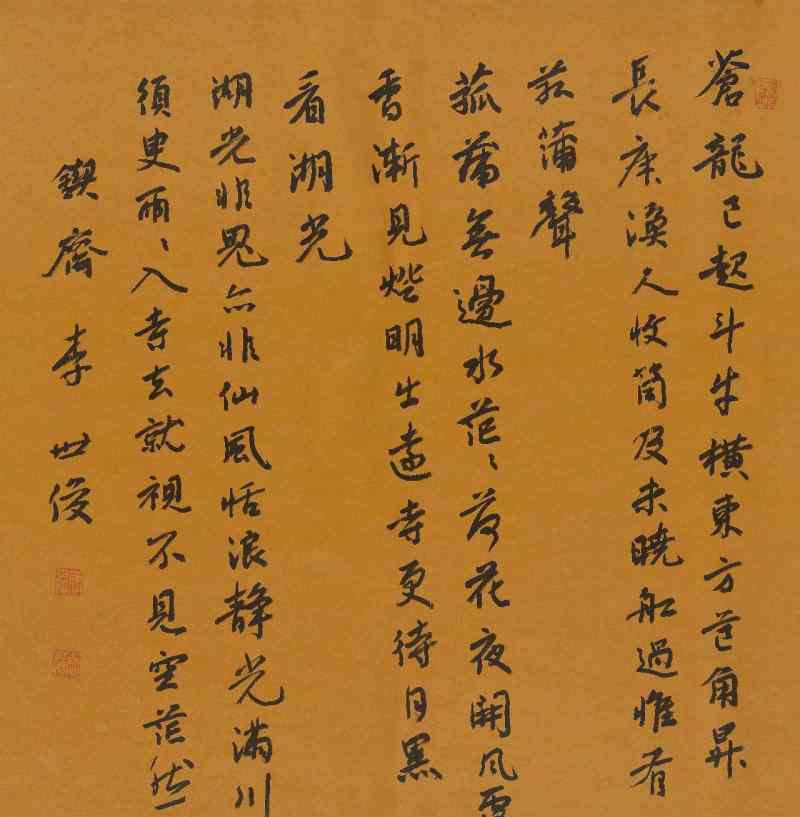 蒼龍已起斗牛橫東方芒角昇
長庚漁人收筒及未曉舩過惟有
菰蒲聲
菰蒲無邊水茫〻荷花夜開風露
香漸見燈明出遠寺更待月黑
看湖光
湖光非鬼亦非仙風恬浪靜光滿川
須臾兩〻入寺去就視不見空茫然
鍥齋李世俊